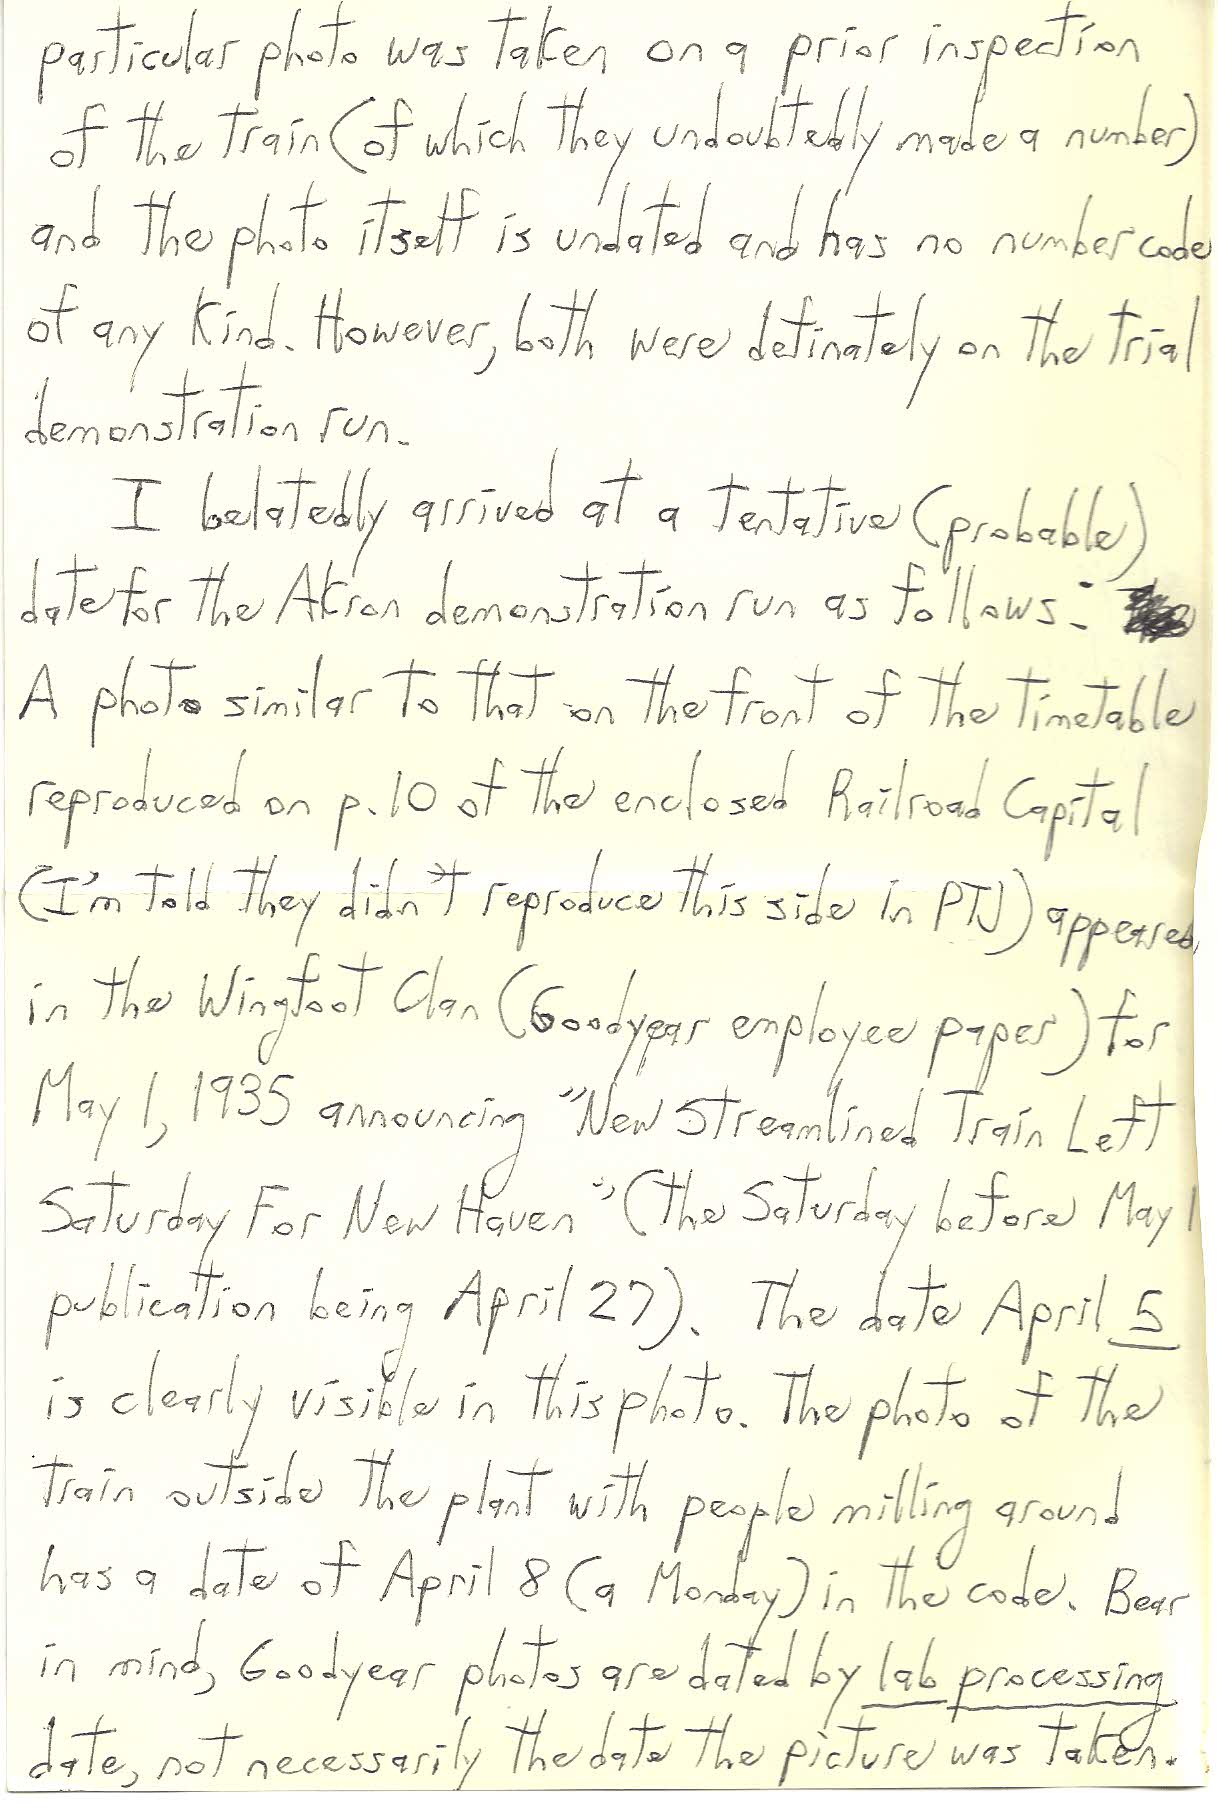 particular photo was taken on a prior inspection
of the train (of which they undoubtedly made a number)
and the photo itself is undated and has no number code
of any kind. However, both were definately on the trial
demonstration run.
I belatedly arrived at a tentative (probable)
date for the Akron demonstration run as follows:
A photo similar to that on the front of the timetable
reproduced on p.10 of the enclosed Railroad Capital
(I'm told they didn't reproduce this side in PTJ) appeared
in the Wingfoot Clan (Goodyear employee paper) for
May 1, 1935 announcing "New Streamlined Train Left
Saturday For New Haven" (the Saturday before May 1
publication being April 27). The date April 5
is clearly visible in this photo. The photo of the
train outside the plant with people milling around
has a date of April 8 (a Monday) in the code. Bear
in mind, Goodyear photos are dated by lab processing
date, not necessarily the date the picture was taken.